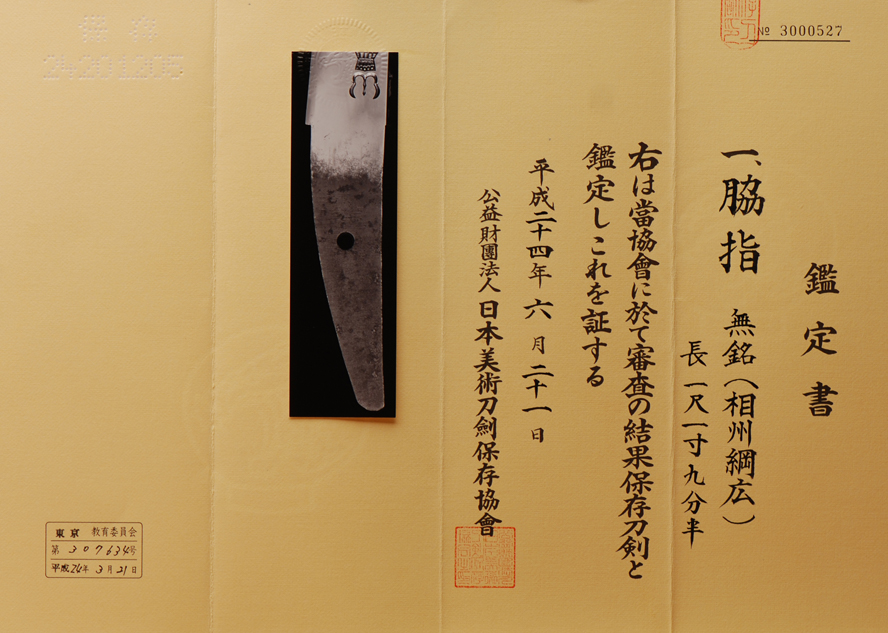 № 3000527
鑑定書
一、脇指 無銘（相州綱広）
長一尺一寸九分半
右は當協會に於て審査の結果保存刀剣と
鑑定しこれを証する
平成二十四年六月二十一日
公益財團法人 日本美術刀劍保存協會
東京 教育委員会
第307634号
平成24年3月21日